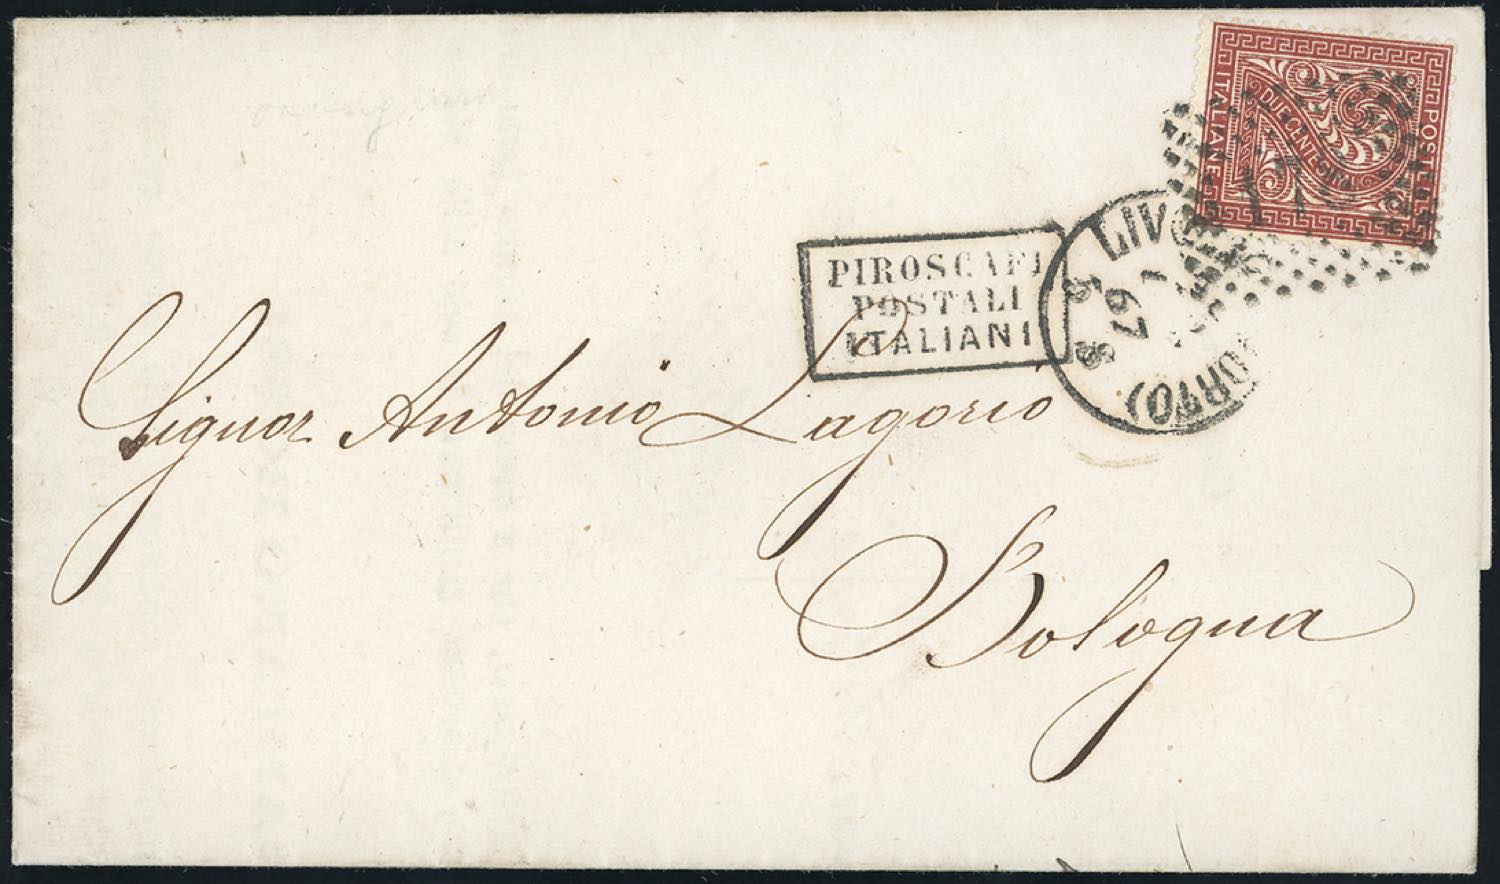 POSTE
ITALIANE
DUE CENTESIMI
PIROSCAFI
POSTALI
ITALIANI
LIVORNO
67
(PORTO)
Signor Antonio Lagorio
Bologna